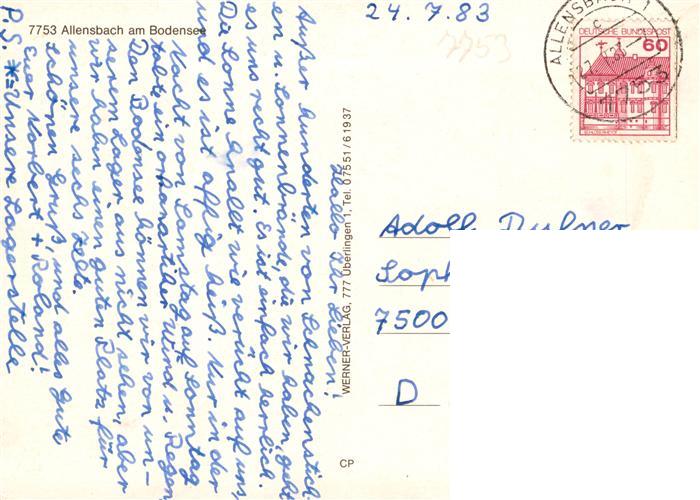 7753 Allensbach am Bodensee
24.7.83
7753
ALLENSBACH 1
c
DEUTSCHE BUNDESPOST
60
Hallo Ihr Lieben!
Außer hunderten von Schnackenstich
en u. Sonnenbrände, die wir haben, geht
es uns recht gut. Es ist einfach herrlich.
Die Sonne knallt wie verückt auf uns,
und es ist affig heiß. Nur in der
Nacht von Samstag auf Sonntag
tobte ein orkanartiker Wind u. Regen,
Den Bodensee können wir von un-
serem Lager aus nicht sehen, aber
wir haben einen guten Platz für
unsere sechs Zelte.
Schönen Gruß, und alles Gute
Euer Norbert + Roland!
P.S. *=Unsere Lagerstelle
WERNER-VERLAG, 777 Überlingen 1, Tel. 07551/61937
Adolf
7500
D
CP